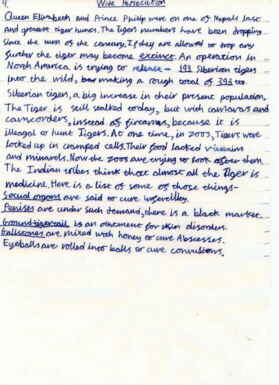 4. Wild Persecution
Queen Elizabeth and Prince Philip were on one of Nepals last
and greatest tiger hunts. The Tigers numbers have been dropping
since the turn of the century. If they are allowed to drop any
further the tiger may become extinct. An operation in
North America is trying to release 193 Siberian tigers
into the wild, making a rough total of 393
Siberian tigers, a big increase in their present population.
The Tiger is still stalked today, but with cameras and
camcorders, instead of firearms, because it is
illegal to hunt Tigers. At one time, in zoos, Tigers were
locked up in cramped cells. Their food lacked vitamins
and minerals. Now the zoos are trying to look after them
The Indian tribes think that almost all the Tiger is
medicine. Here is a list of some of those things-
Sexual organs are said to cure infertility.
Penises are under such demand, there is a black market.
Ground tiger tail is an ointment for skin disorders.
Gallstones are mixed with honey to cure Abscesses.
Eyeballs are rolled into balls to cure convultions.